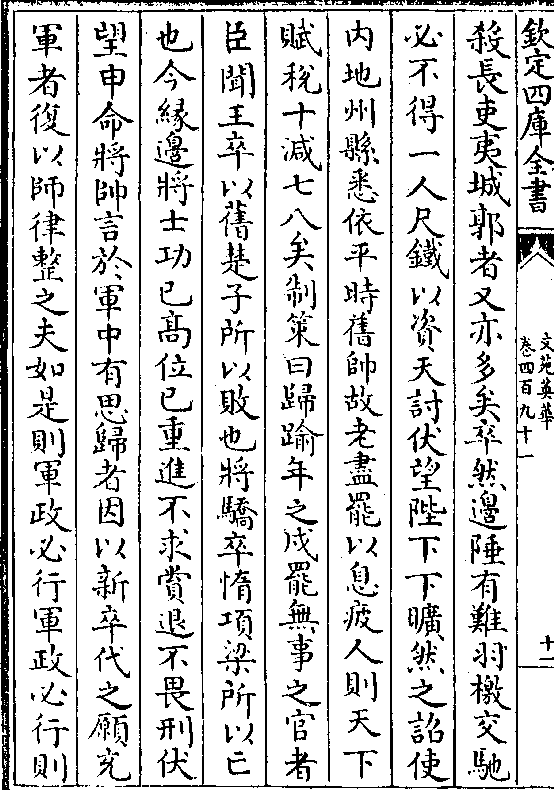 欽定四庫全書
文苑英華
卷四百九十一
十一
殺長吏夷城郭者又亦多矣卒然邊陲有難羽檄交馳
必不得一人尺鐵以資天討伏望陛下下曠然之詔使
内地州縣悉依平時舊帥故老盡罷以息疲人則天下
賦稅十減七八矣制策曰歸踰年之戍罷無事之官者
臣聞王卒以舊楚子所以敗也將驕卒惰項梁所以亡
也今緣邊將士功已高位已重進不求賞退不畏刑伏
望申命將帥言於軍中有思歸者因以新卒代之願充
軍者復以師律整之夫如是則軍政必行軍政必行則